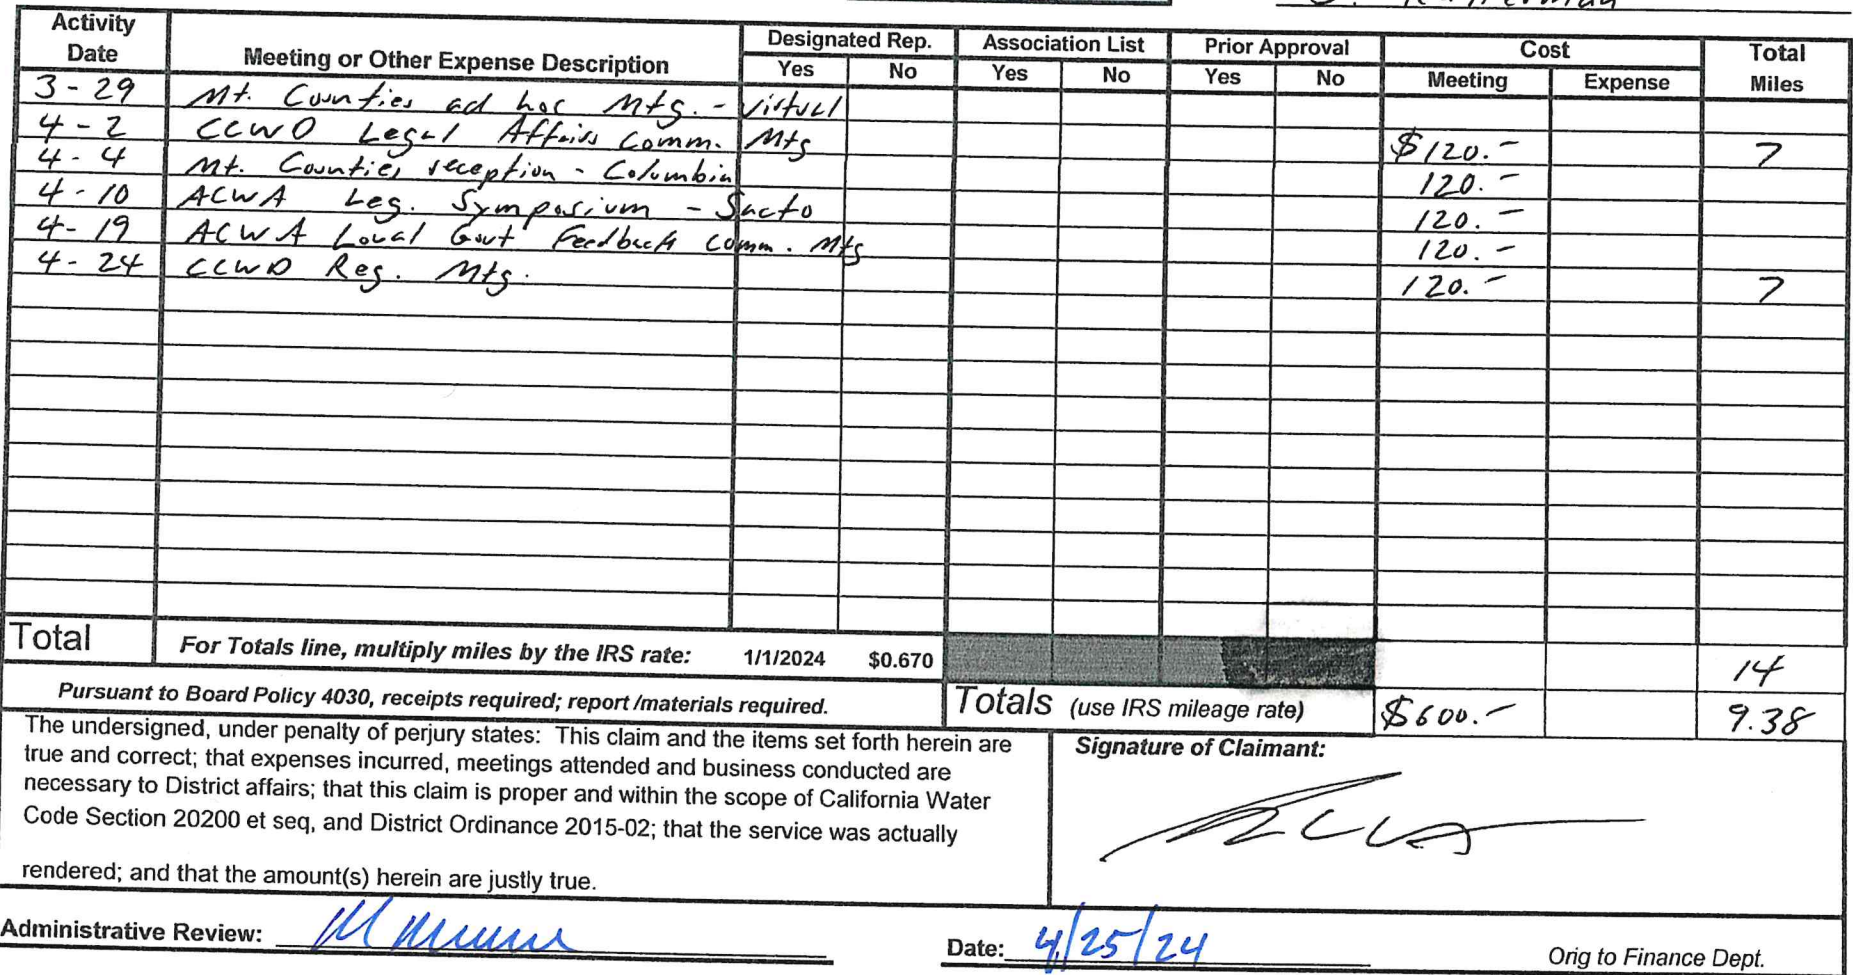 Activity Date Meeting or Other Expense Description Designated Rep. Association List Prior Approval Cost Total Miles
Yes No Yes No Yes No Meeting Expense
3-29 Mt. Counties ad hoc Mtg. - Virtual
4-2 CCWD Legal Affairs Comm. Mtg $120.- 7
4-4 Mt. Counties reception - Columbia 120.-
4-10 ACWA Leg. Symposium - Sacto 120.-
4-19 ACWA Local Govt Feedback Comm. Mtg 120.-
4-24 CCWD Reg. Mtg. 120.- 7
Total For Totals line, multiply miles by the IRS rate: 1/1/2024 $0.670 14
Pursuant to Board Policy 4030, receipts required; report /materials required. Totals (use IRS mileage rate) $600.- 9.38
The undersigned, under penalty of perjury states: This claim and the items set forth herein are
true and correct; that expenses incurred, meetings attended and business conducted are
necessary to District affairs; that this claim is proper and within the scope of California Water
Code Section 20200 et seq, and District Ordinance 2015-02; that the service was actually
rendered; and that the amount(s) herein are justly true.
Signature of Claimant:
Administrative Review: Date: 4/25/24 Orig to Finance Dept.